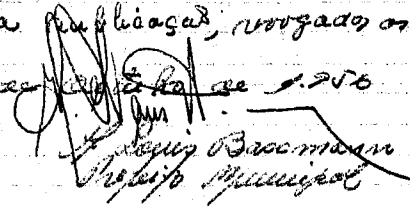 a publicação, revogados os
de de 1.956
Louis Bassmann
Prefeito Municipal